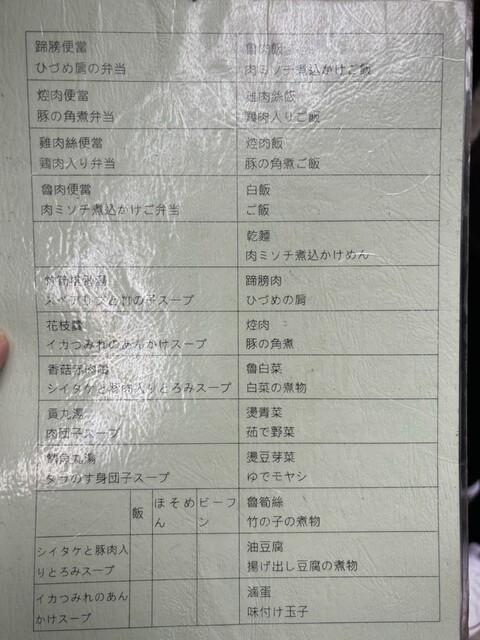 蹄膀便當
ひづめ肩の弁当
焢肉便當
豚の角煮弁当
雞肉絲便當
鶏肉入り弁当
魯肉便當
肉ミソチ煮込かけご弁当
スペアリブと竹の子スープ
花枝羹
イカつみれのあんかけスープ
香菇赤肉羹
シイタケと豚肉入りとろみスープ
貢丸湯
肉団子スープ
鱈魚丸湯
タラのすり身団子スープ
飯
ほそめん
ビーフン
シイタケと豚肉入りとろみスープ
イカつみれのあんかけスープ
魯肉飯
肉ミソチ煮込かけご飯
雞肉絲飯
鶏肉入りご飯
焢肉飯
豚の角煮ご飯
白飯
ご飯
乾麵
肉ミソチ煮込かけめん
蹄膀肉
ひづめの肩
焢肉
豚の角煮
魯白菜
白菜の煮物
燙青菜
茹で野菜
燙豆芽菜
ゆでモヤシ
魯筍絲
竹の子の煮物
油豆腐
揚げ出し豆腐の煮物
滷蛋
味付け玉子